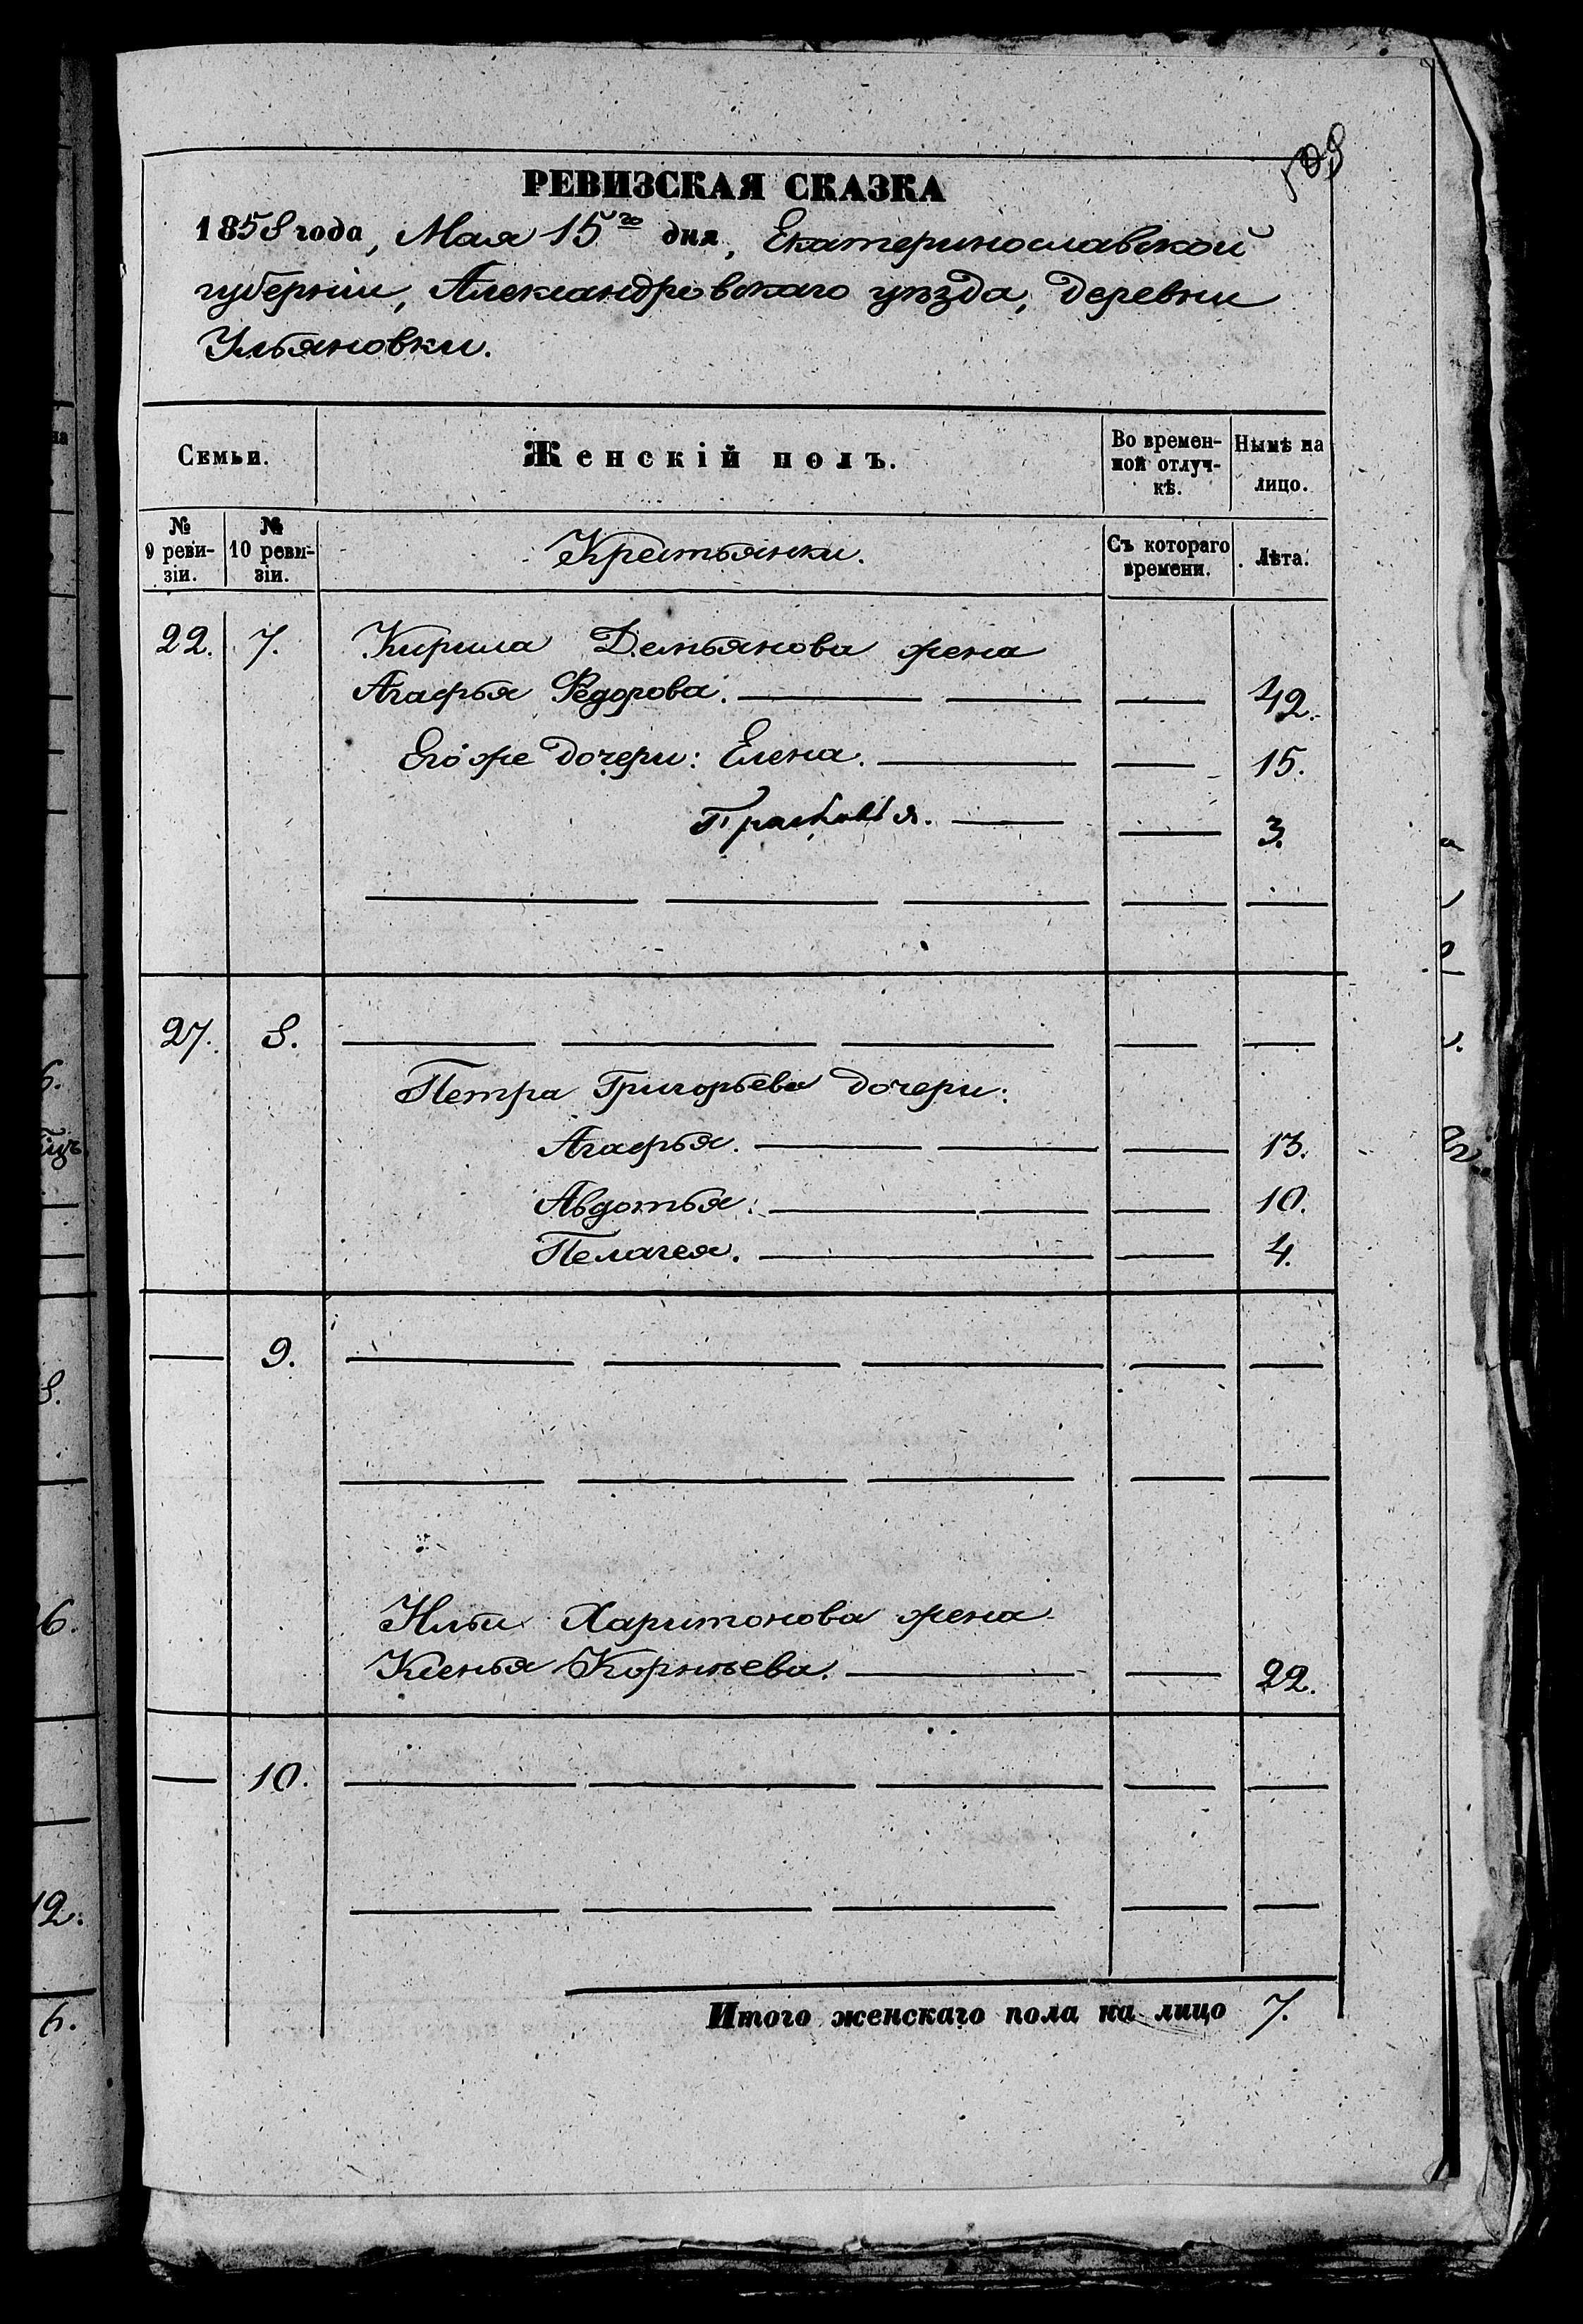 РЕВИЗСКАЯ СКАЗКА
1858 года, Мая 15го дня, Екатеринославской
губернии, Александровскаго уѣзда, деревни
Ульяновки.
Семьи.
Женскій полъ.
Во времен-
ной отлуч-
кѣ.
Нынѣ на
лицо.
№
9 реви-
зіи.
№
10 реви-
зіи.
Крестьянки.
Съ котораго
времени.
Лѣта.
22. 7. Кирила Демьянова жена
Агафья Федорова. — — — 42.
Его же дочери: Елена. — — 15.
Прасковья. — — 3.
— — — — —
27. 8. — — — — —
Петра Григорьева дочери:
Агафья. — — — 13.
Авдотья. — — — 10.
Пелагея. — — 4.
— 9. — — — — —
— — — — —
Ильи Харитонова жена
Ксенья Корнѣева. — — 22.
— 10. — — — — —
— — — — —
Итого женскаго пола на лицо 7.